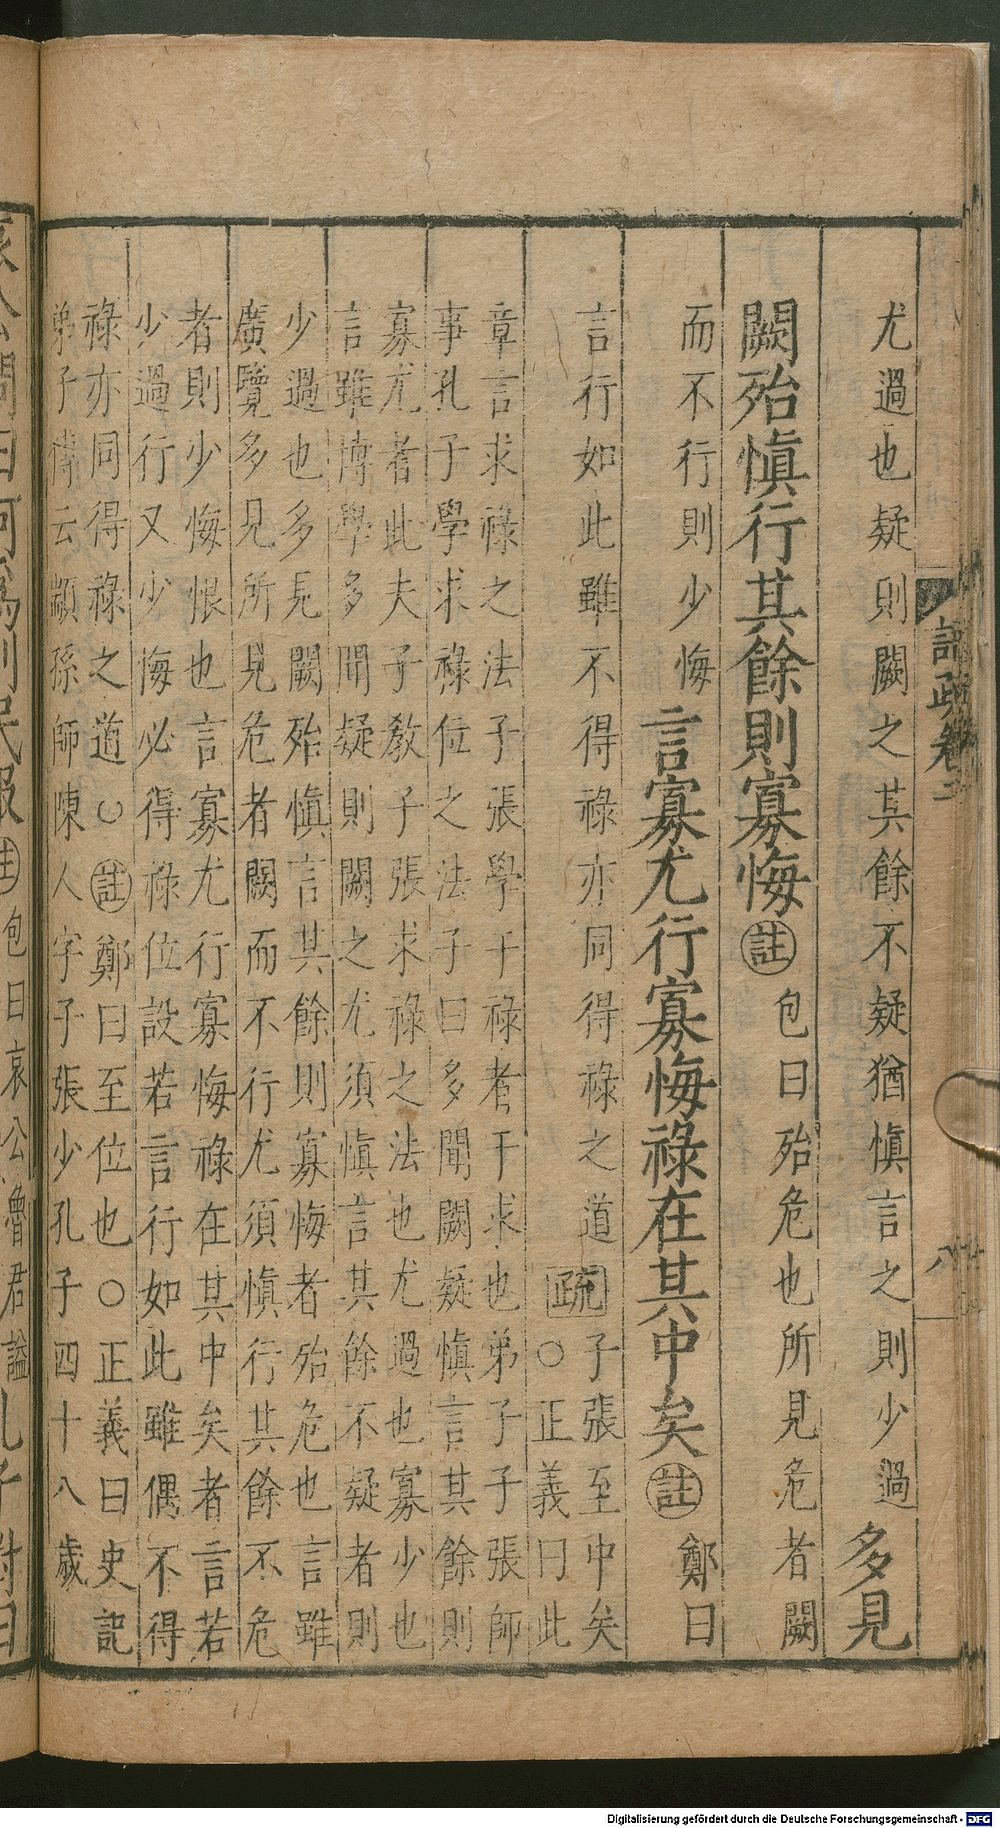 語疏卷二
八
尤過也疑則闕之其餘不疑猶慎言之則少過多見
闕殆慎行其餘則寡悔註包曰殆危也所見危者闕
而不行則少悔言寡尤行寡悔祿在其中矣註鄭曰
言行如此雖不得祿亦同得祿之道疏子張至中矣
○正義曰此
章言求祿之法子張學干祿者干求也弟子子張師
事孔子學求祿位之法子曰多聞闕疑慎言其餘則
寡尤者此夫子教子張求祿之法也尤過也寡少也
言雖博學多聞疑則闕之尤須慎言其餘不疑者則
少過也多見闕殆慎言其餘則寡悔者殆危也言雖
廣覽多見所見危者闕而不行尤須慎行其餘不危
者則少悔恨也言寡尤行寡悔祿在其中矣者言若
少過行又少悔必得祿位設若言行如此雖偶不得
祿亦同得祿之道○註鄭曰至位也○正義曰史記
弟子傳云顓孫師陳人字子張少孔子四十八歲
哀公問曰何為則民服註包曰哀公魯君謚孔子對曰
Digitalisierung gefördert durch die Deutsche Forschungsgemeinschaft - DFG